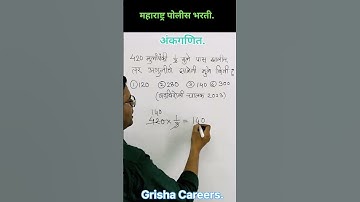 महाराष्ट्र पोलीस भरती.
अंकगणित.
420 मुलांपैकी 1/3 मुले पास झालीत
तर अनुत्तीर्ण झालेली मुले किती ?
① 120 ② 280 ③ 140 ④ 300
चालक 2023)
140
420 × 1/3 = 140
Grisha Careers.